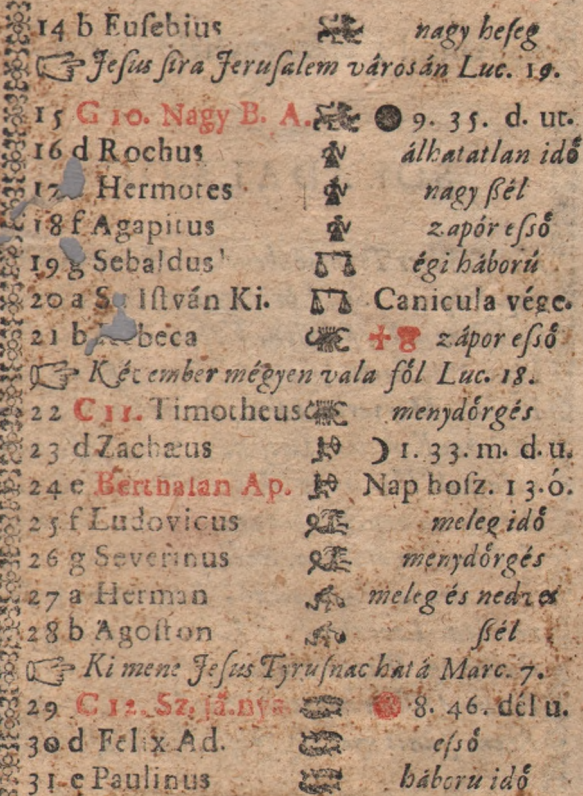 14 b Euſebius nagy heſeg
Jeſus ſira Jeruſalem városán Luc. 19.
15 G 10. Nagy B. A. 9. 35. d. ut.
16 d Rochus álhatatlan idő
17 Hermotes nagy ßél
18 f Agapitus zapór eſső
19 g Sebaldus égi háború
20 a Iſtván Ki. Canicula vége.
21 b beca zápor eſső
Két ember mégyen vala föl Luc. 18.
22 C 11. Timotheus menydőrgés
23 d Zachæus ☽ 1. 33. m. d. u.
24 e Berthalan Ap. Nap hoſz. 13. ó.
25 f Ludovicus meleg idő
26 g Severinus menydőrgés
27 a Herman meleg és nedves
28 b Agoſton ßél
Ki mene Jeſus Tyruſnac hatá Marc. 7.
29 C 12. Sz. 8. 46. dél u.
30 d Felix Ad. eſső
31 e Paulinus háboru idő